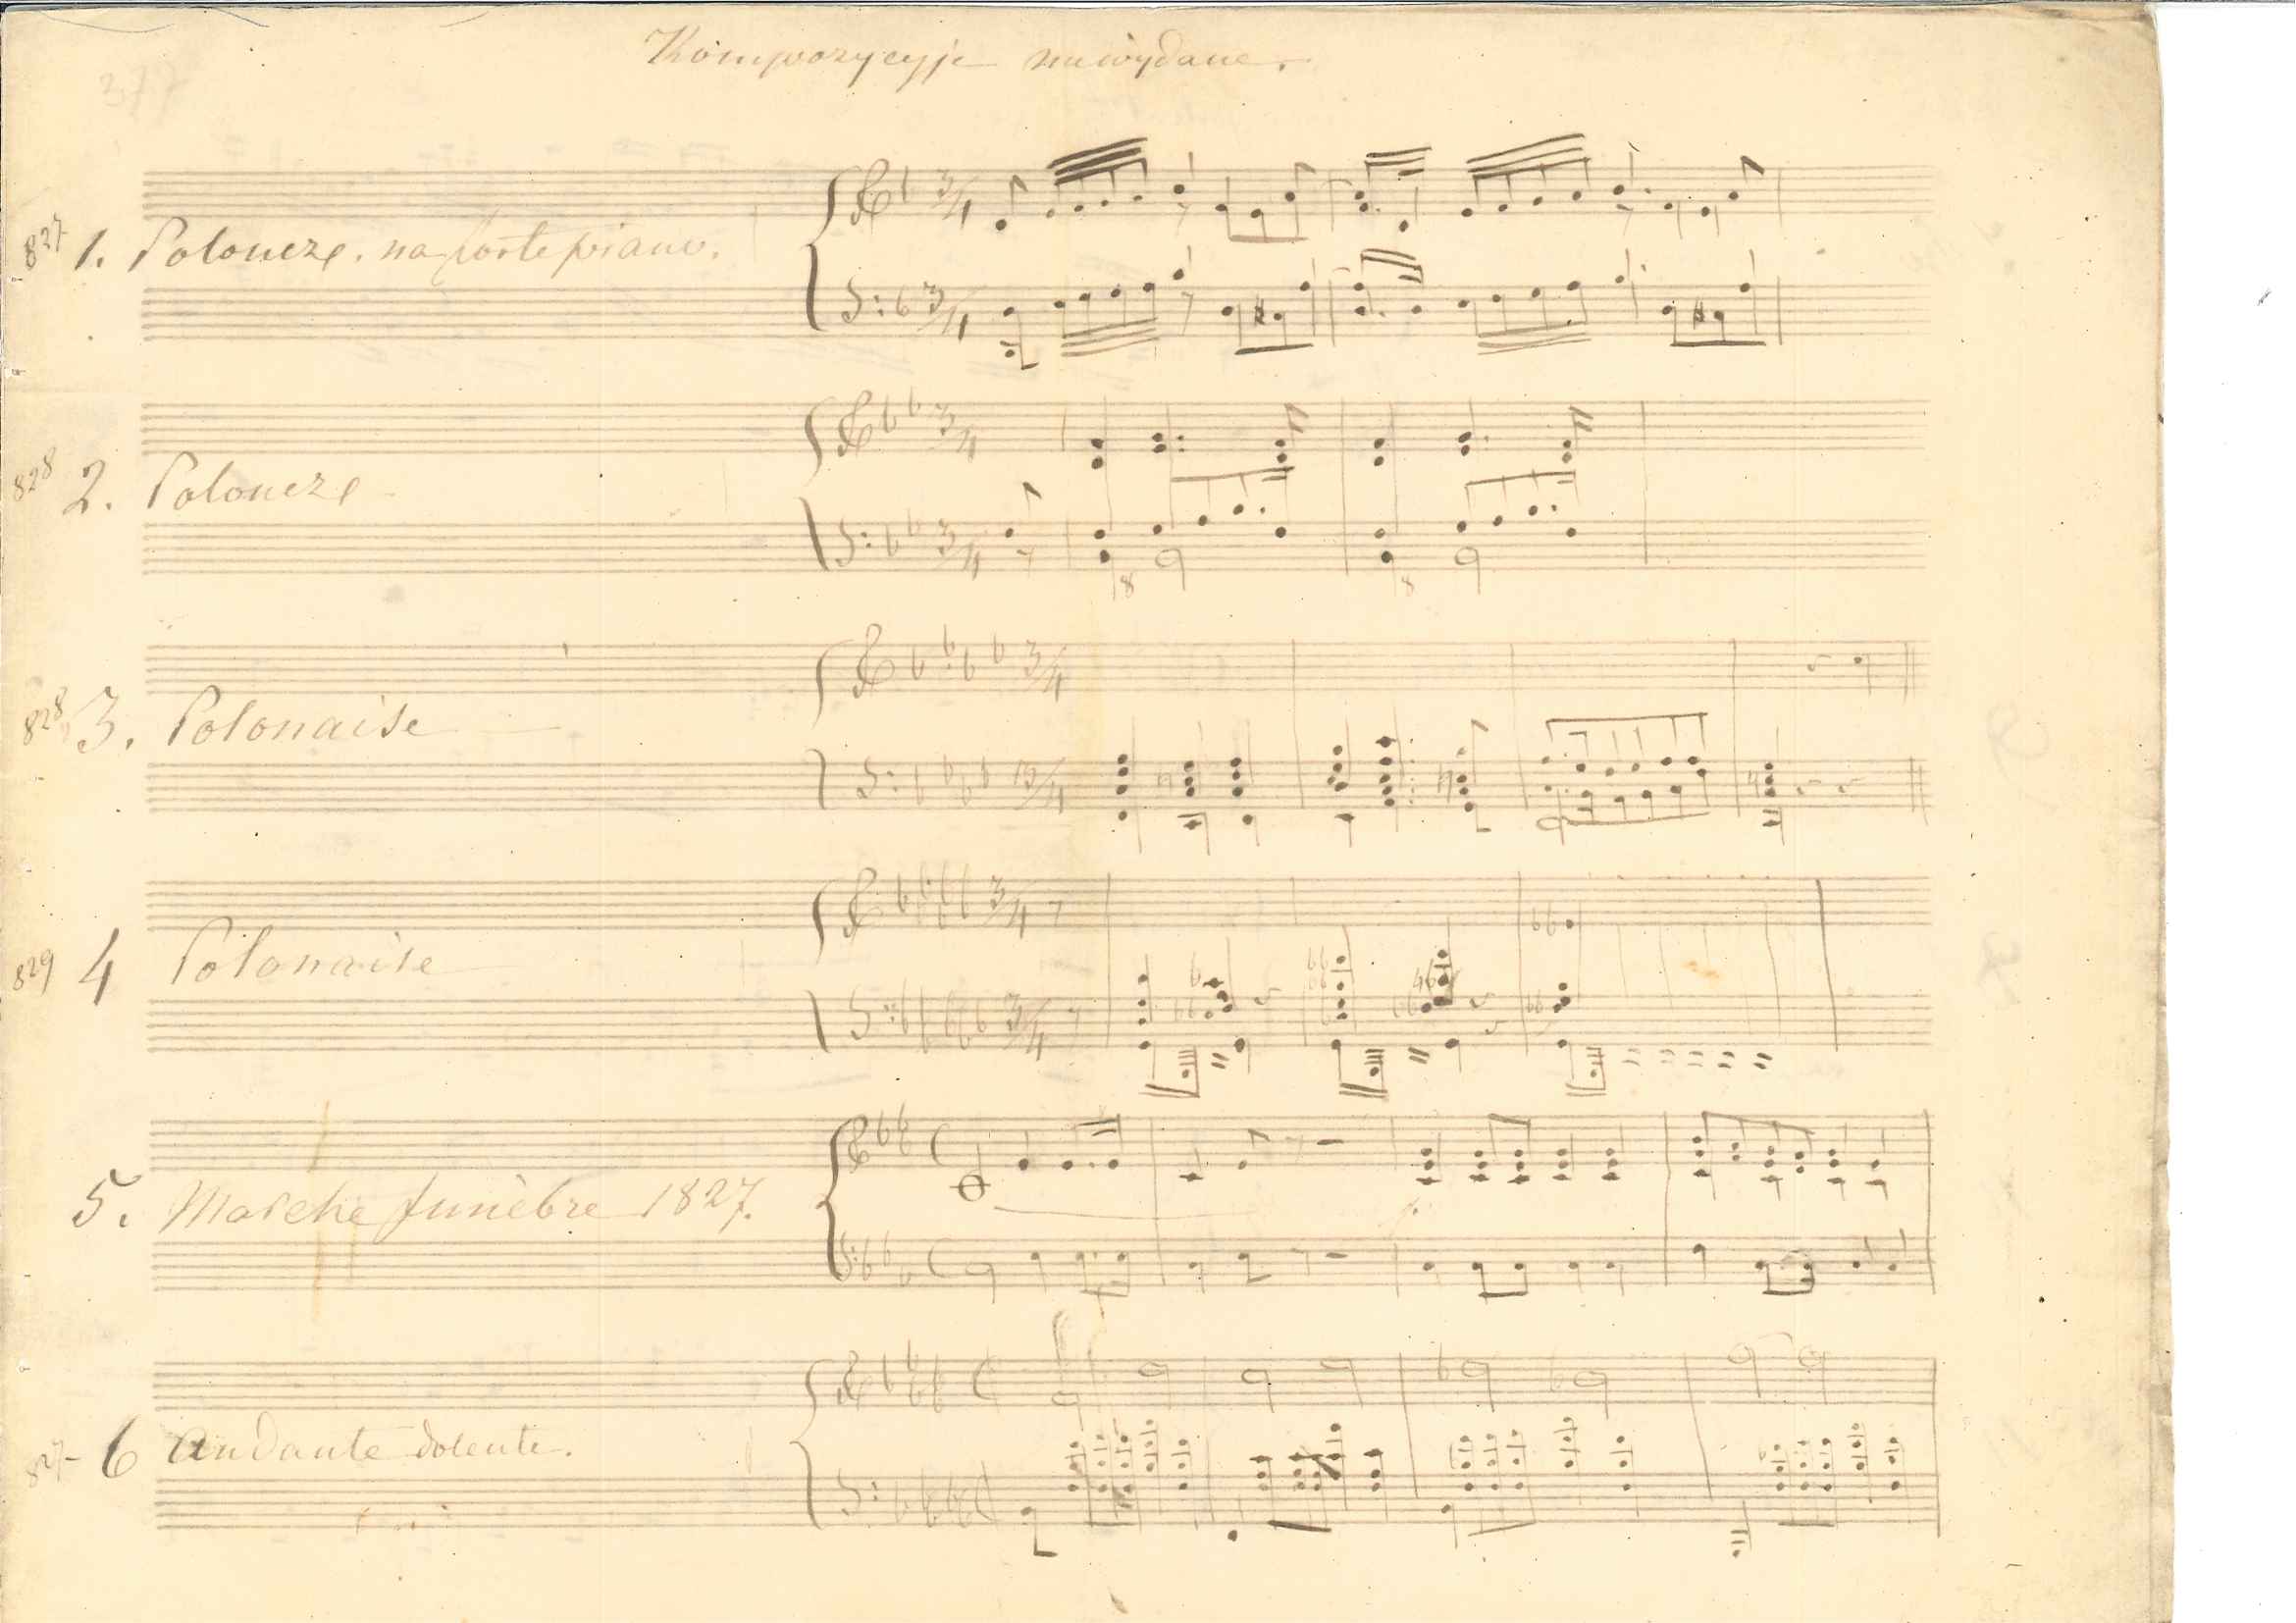 Kompozycyje niewydane.
377
827 1. Polonez. na fortepiano.
828 2. Polonez
828 3. Polonaise
829 4 Polonaise
5. Marche funèbre 1827.
827 - 6 Andante dolente.